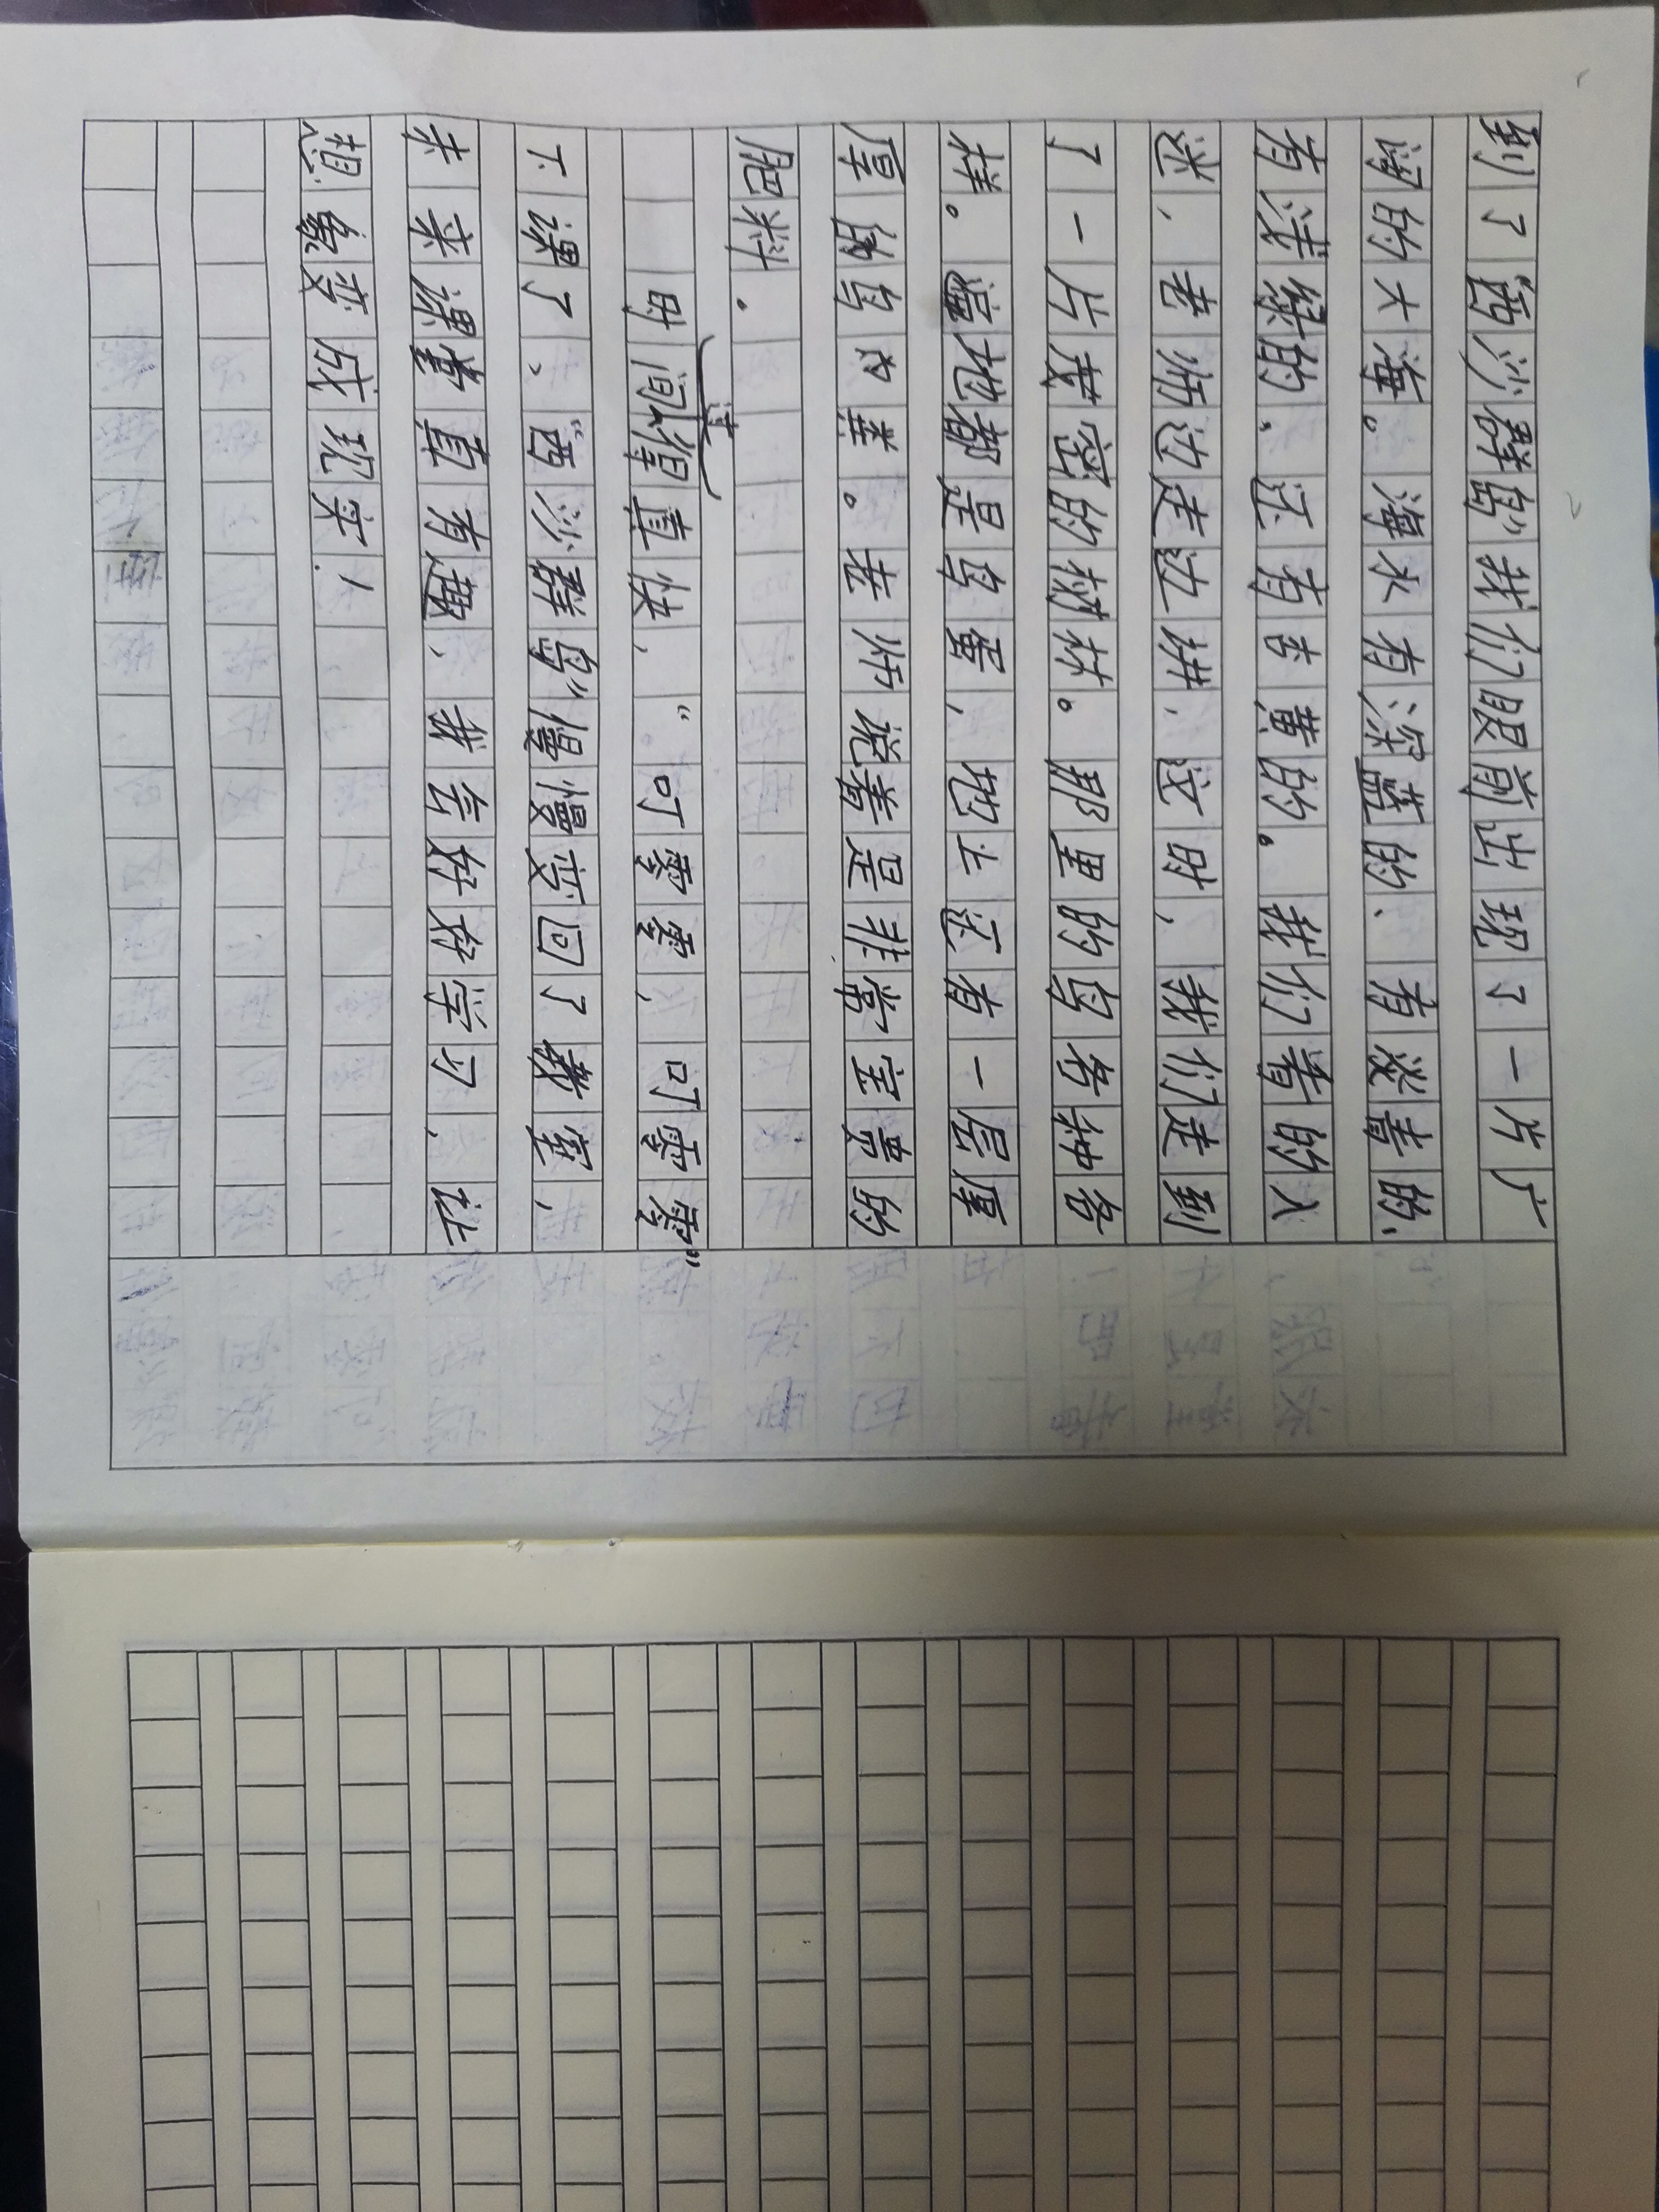 到了“西沙群岛”我们眼前出现了一片广
阔的大海。海水有深蓝的、有淡青的、
有浅绿的、还有杏黄的。我们着的入
迷，老师边走边讲，这时，我们走到
了一片茂密的树林。那里的鸟各种各
样。遍地都是鸟蛋，地上还有一层厚
厚的鸟粪。老师说着是非常宝贵的
肥料。
时间过得真快，“叮零零，叮零零”
下课了、“西沙群岛”慢慢变回了教室，
未来课堂真有趣，我会好好学习，让
想象变成现实！